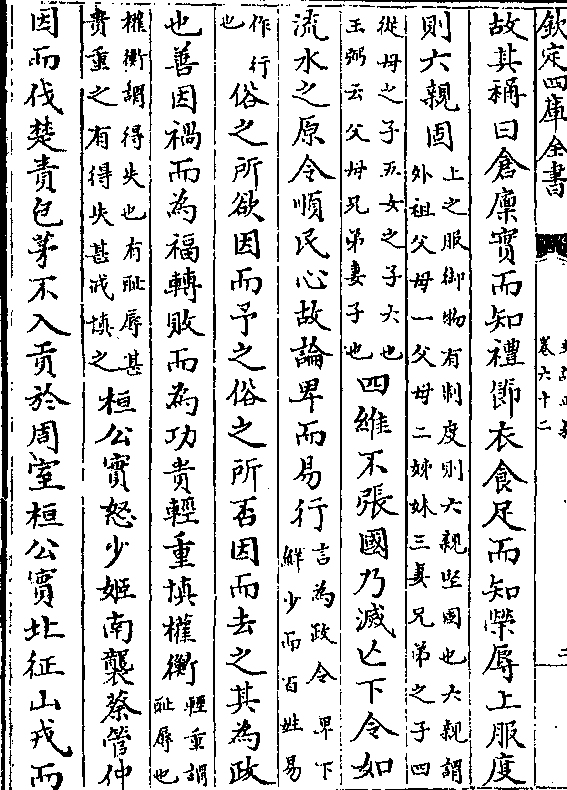 欽定四庫全書
卷六十二
二
故其稱曰倉廩實而知禮節衣食足而知榮辱上服度
則六親固
上之服御物有制度則六親堅固也六親謂
外祖父母一父母二姊妹三妻兄弟之子四
從母之子五女之子六也
王弼云父母兄弟妻子也
四維不張國乃滅亡下令如
流水之原令順民心故論卑而易行
言為政令卑下
鮮少而百姓易
作行
也
俗之所欲因而予之俗之所否因而去之其為政
也善因禍而為福轉敗而為功貴輕重慎權衡
輕重謂
恥辱也
權衡謂得失也有恥辱甚
貴重之有得失甚戒慎之
桓公實怒少姬南襲蔡管仲
因而伐楚責包茅不入貢於周室桓公實北征山戎而